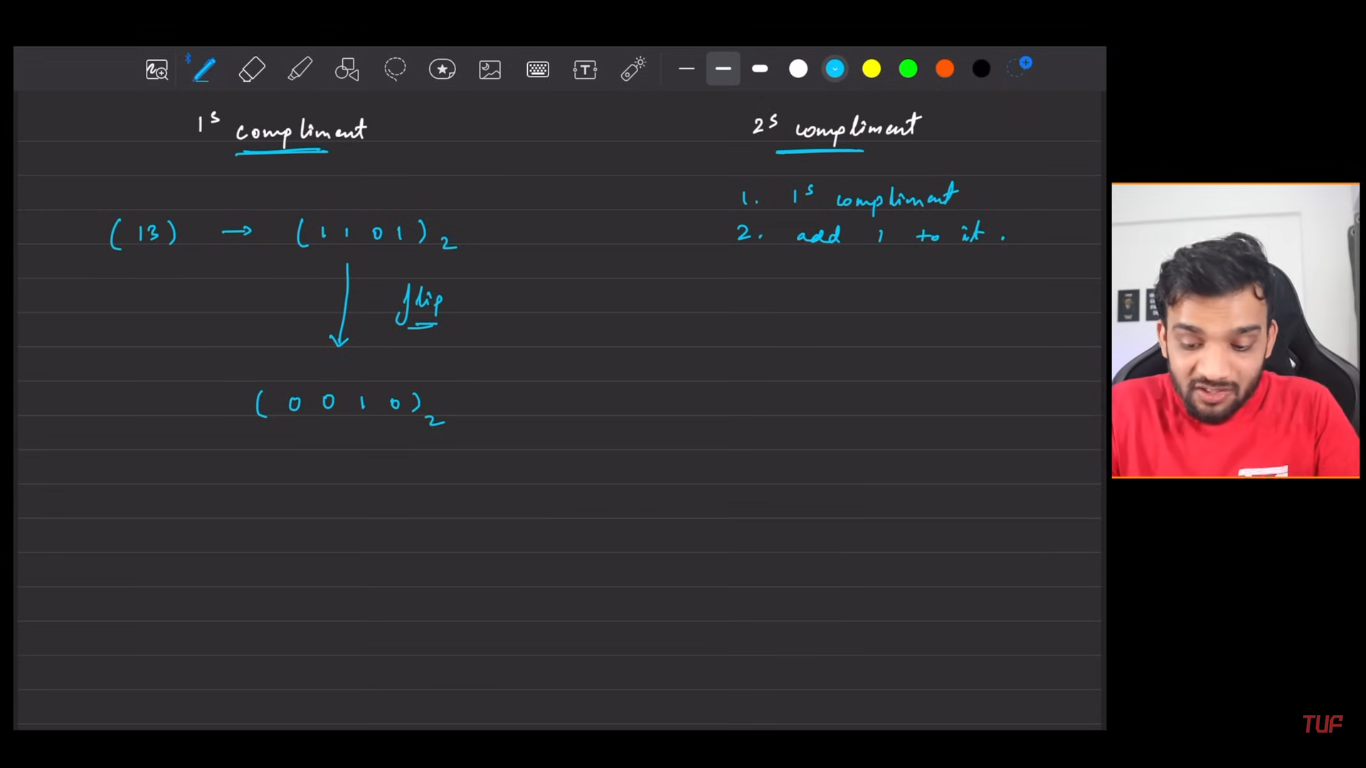 1s compliment
(13) → (1 1 0 1)2
flip
(0 0 1 0)2
2s compliment
1. 1s compliment
2. add 1 to it.
TUF